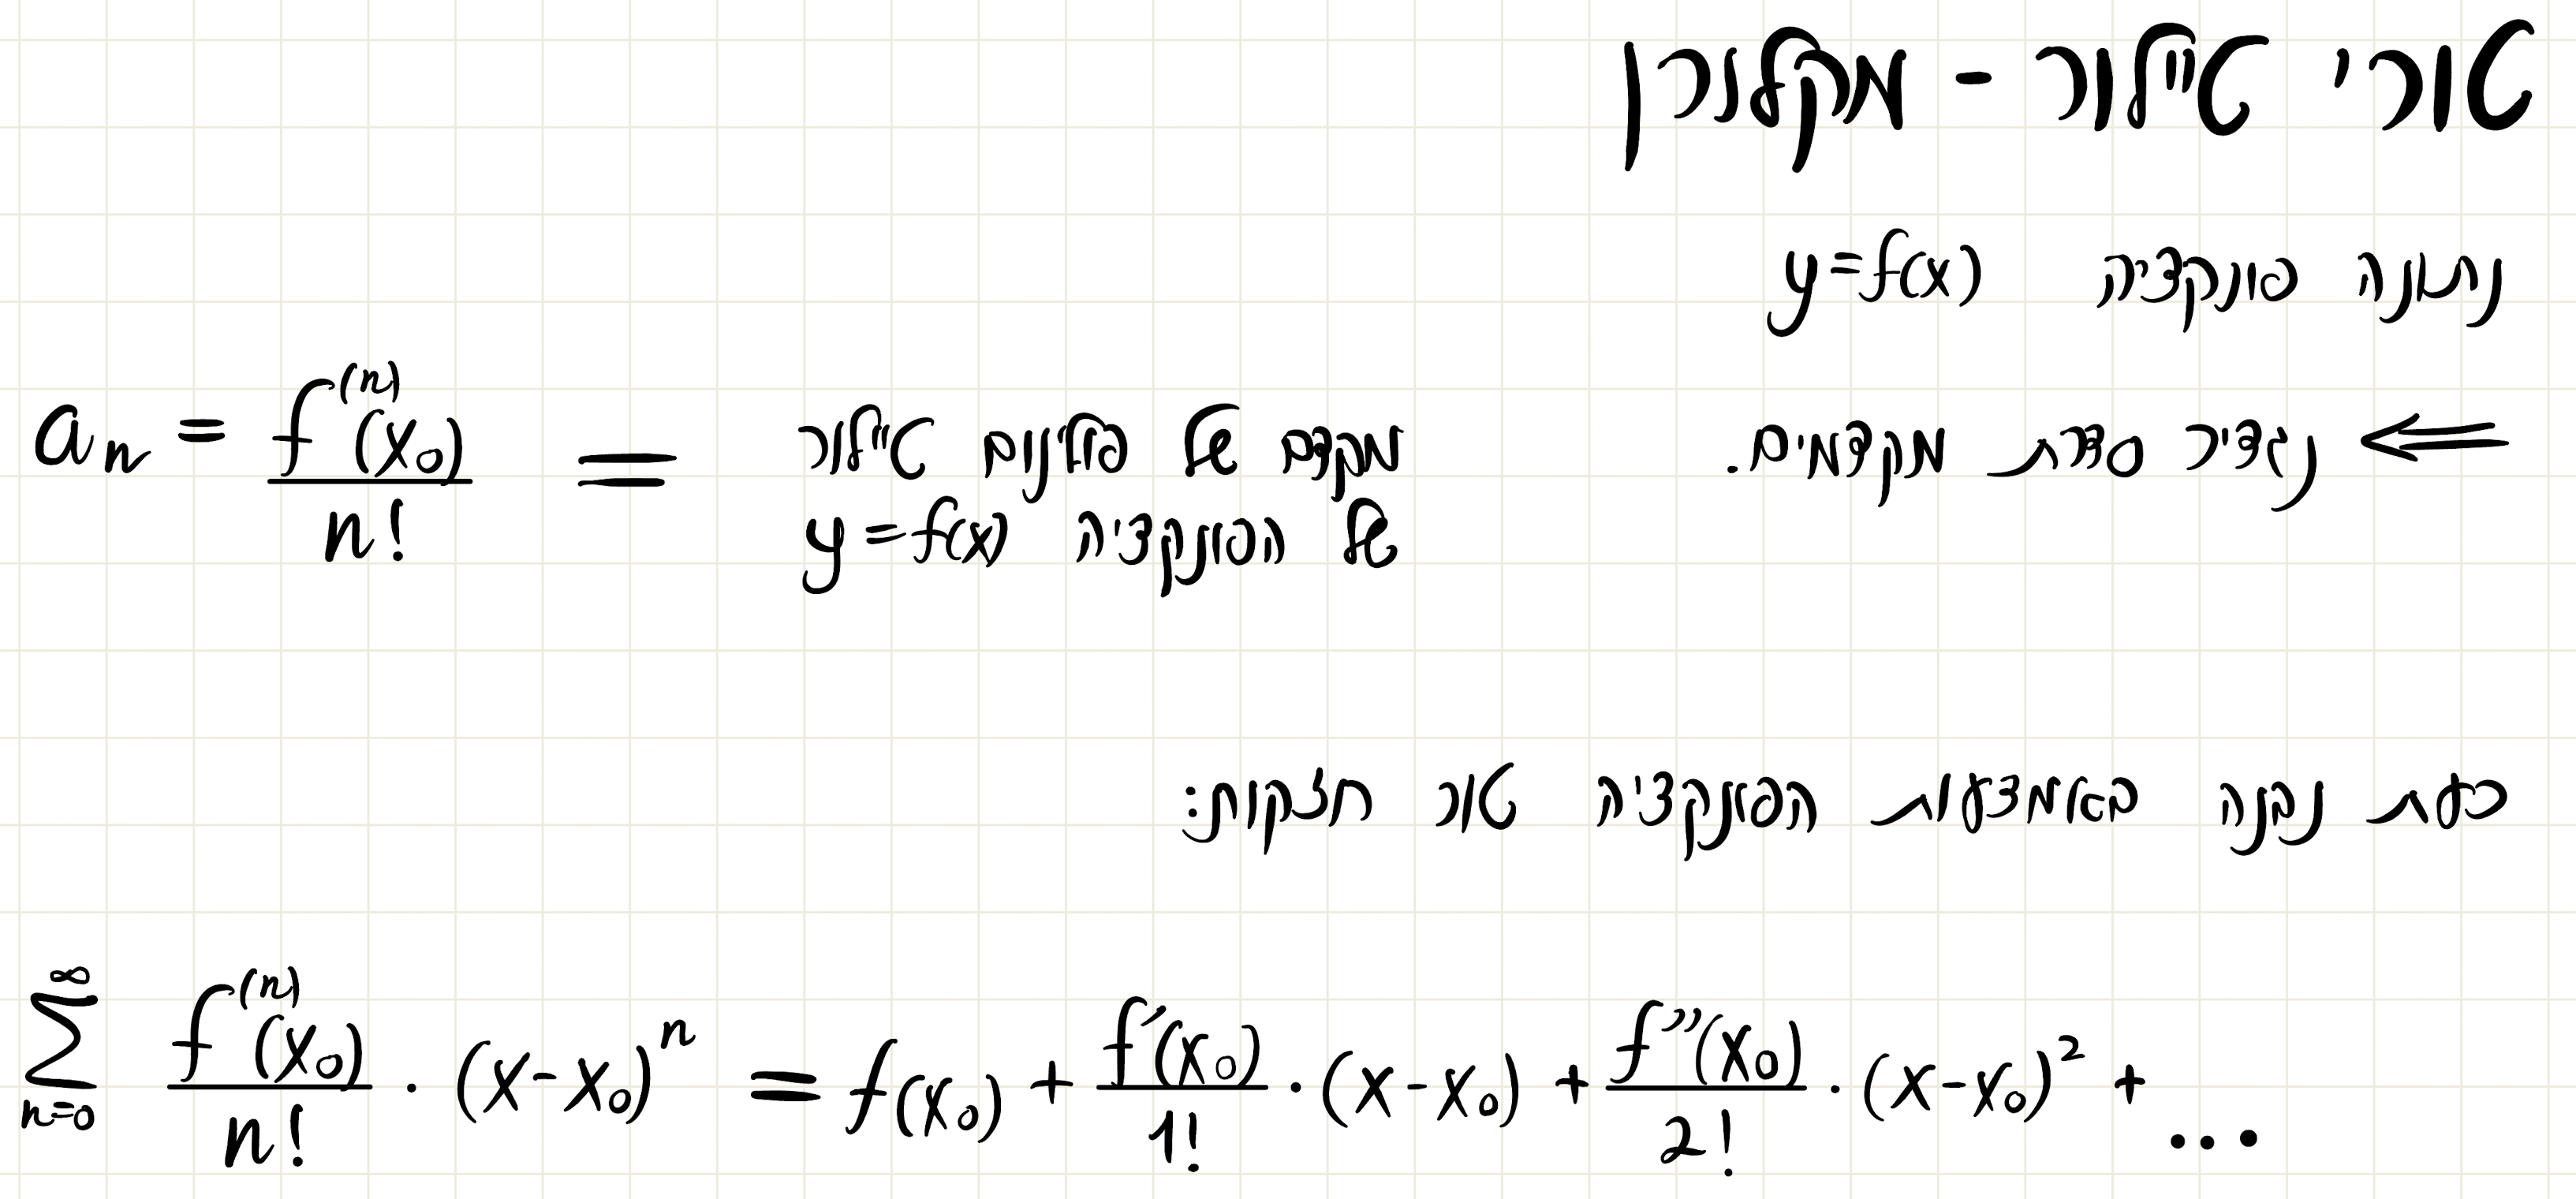 טורי טיילור - מקלורן
נתונה פונקציה y=f(x)
⇐ נגדיר סדרת מקדמים.
מקדם של פולינום טיילור = aₙ = f⁽ⁿ⁾(x₀)/n!
של הפונקציה y=f(x)
כעת נבנה באמצעות הפונקציה טור חזקות:
∑_{n=0}^{∞} f⁽ⁿ⁾(x₀)/n! · (x-x₀)ⁿ = f(x₀) + f'(x₀)/1! · (x-x₀) + f''(x₀)/2! · (x-x₀)² + ...